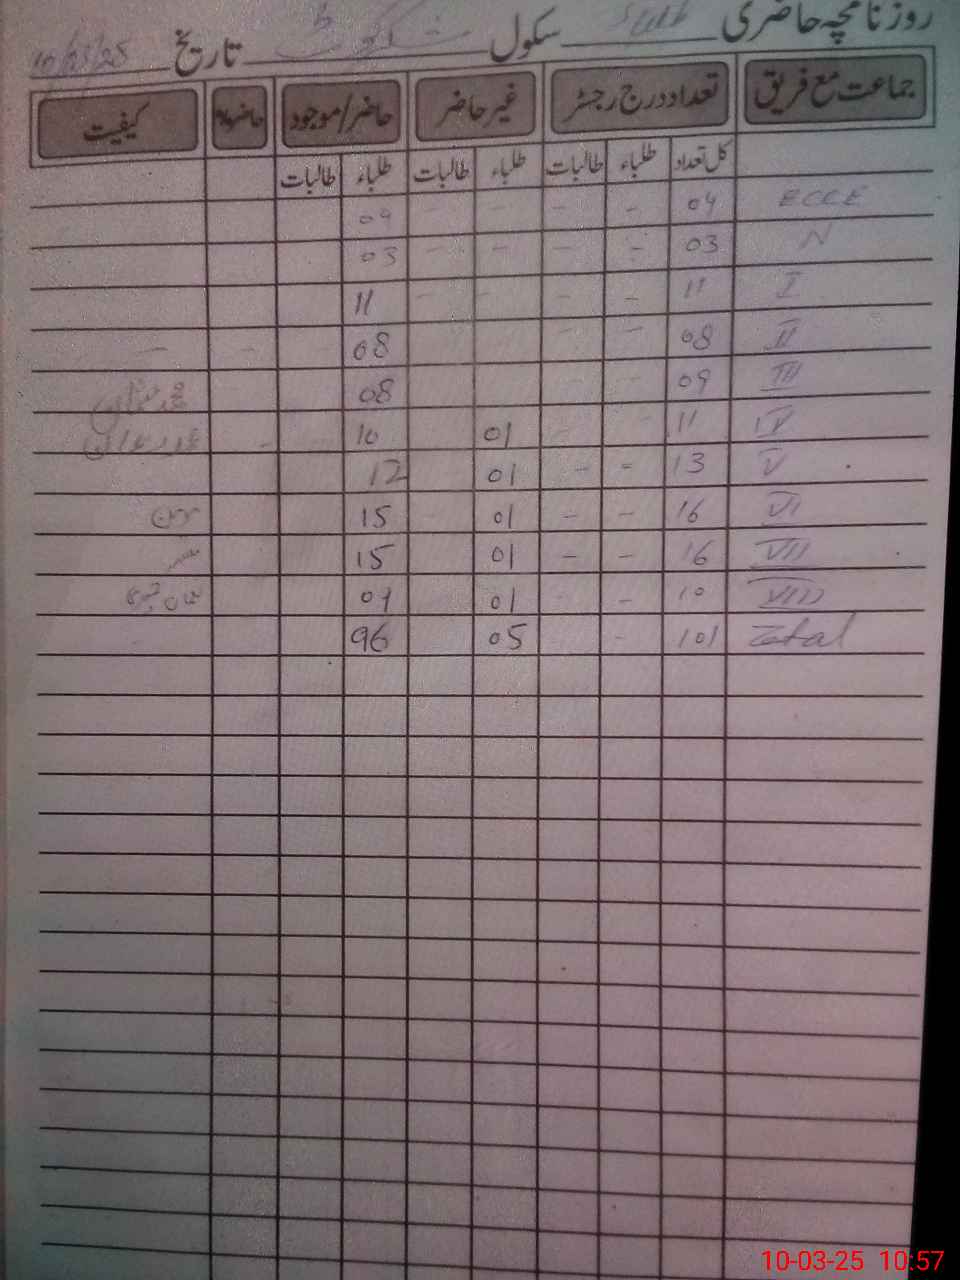 روزنامچہ حاضری سکول تاریخ 10/03/25
جماعت مع فریق تعداد درج رجسٹر غیر حاضر حاضر/موجود کیفیت
کل تعداد طلباء طالبات طلباء طالبات طلباء طالبات
ECCE 04 - - - - 04
N 03 - - - - 03
I 11 - - - - 11
II 08 - - 08 - -
III 09 - 08
IV 11 01 10
V 13 - - 01 12
VI 16 - - 01 15
VII 16 - - 01 15
VIII 10 - - 01 09
Total 101 - 05 96
10-03-25 10:57